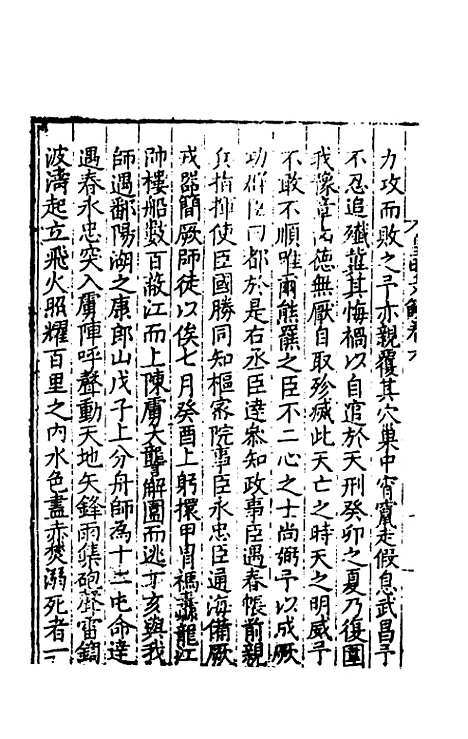 力攻而敗之予亦親覆其穴巢中宵竄走假息武昌予
不忍追殲冀其悔禍以自逭於天刑癸卯之夏乃復圍
我豫章凶德無厭自取殄滅此天亡之時天之明威予
不敢不順唯爾熊羆之臣不二心之士尚弼予以成厥
功群臣同都於是右丞臣達參知政事臣遇春帳前親
兵指揮使臣國勝同知樞密院事臣永忠臣通海備厥
戎器簡厥師徒以俟七月癸酉上躬擐甲胄禡纛龍江
帥樓船數百蔽江而上陳虜大讋解圍而逃丁亥與我
師遇鄱陽湖之康郎山戊子上分舟師為十二屯命達
遇春永忠突入虜陣呼聲動天地矢鋒雨集砲聲雷鍧
波濤起立飛火照耀百里之內水色盡赤焚溺死者一
皇明文衡卷六